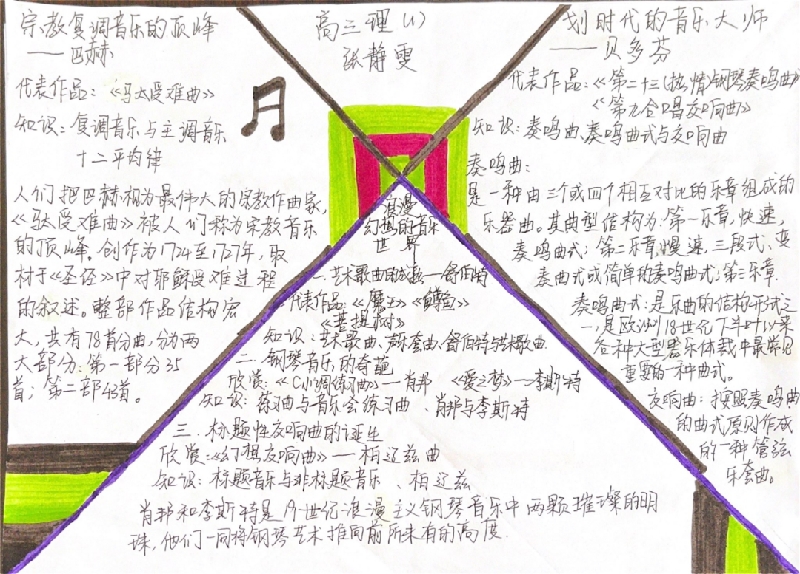 宗教复调音乐的顶峰
——巴赫
代表作品:《马太受难曲》
知识:复调音乐与主调音乐
十二平均律
人们把巴赫视为最伟大的宗教作曲家,
《马太受难曲》被人们称为宗教音乐
的顶峰。创作为1724至1727年,取
材于《圣经》中对耶稣受难过程
的叙述。整部作品结构宏
大,共有78首分曲,分为两
大部分:第一部分35
首;第二部43首。
高三理(1)
张静雯
划时代的音乐大师
——贝多芬
代表作品:《第二十三(热情)钢琴奏鸣曲》
《第九合唱交响曲》
知识:奏鸣曲、奏鸣曲式与交响曲
奏鸣曲:
是一种由三个或四个相互对比的乐章组成的
乐器曲。其典型结构为:第一乐章,快速,
奏鸣曲式;第二乐章,慢速,三段式、变
奏曲式或简单的奏鸣曲式;第三乐章.
奏鸣曲式:是乐曲的结构形式之
一,是欧洲18世纪下半叶以来
各种大型器乐体裁中最常见
重要的一种曲式。
交响曲:按照奏鸣曲
的曲式原则作成
的一种管弦
乐套曲。
浪漫
幻想的音乐
世界
一.艺术歌曲的成长—舒伯特
代表作品:《魔王》《鳟鱼》
《菩提树》
知识:艺术歌曲、声乐套曲、舒伯特与艺术歌曲
二.钢琴音乐的奇葩
欣赏:《C小调练习曲》—肖邦 《爱之梦》—李斯特
知识:练习曲与音乐会练习曲、肖邦与李斯特
三.标题性交响曲的诞生
欣赏:《幻想交响曲》—柏辽兹曲
知识:标题音乐与非标题音乐、柏辽兹
肖邦和李斯特是19世纪浪漫主义钢琴音乐中两颗璀璨的明
珠,他们一同将钢琴艺术推向前所未有的高度.